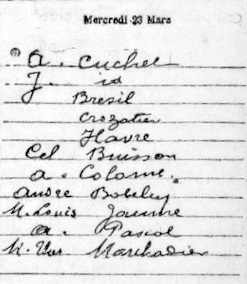 Mercredi 23 Mars
A. Cuchet
J. id
Bresil
Crozatier
Havre
Cel Buisson
A. Colome.
André
M. Louis Jaume
A. Pascal
Marchadier